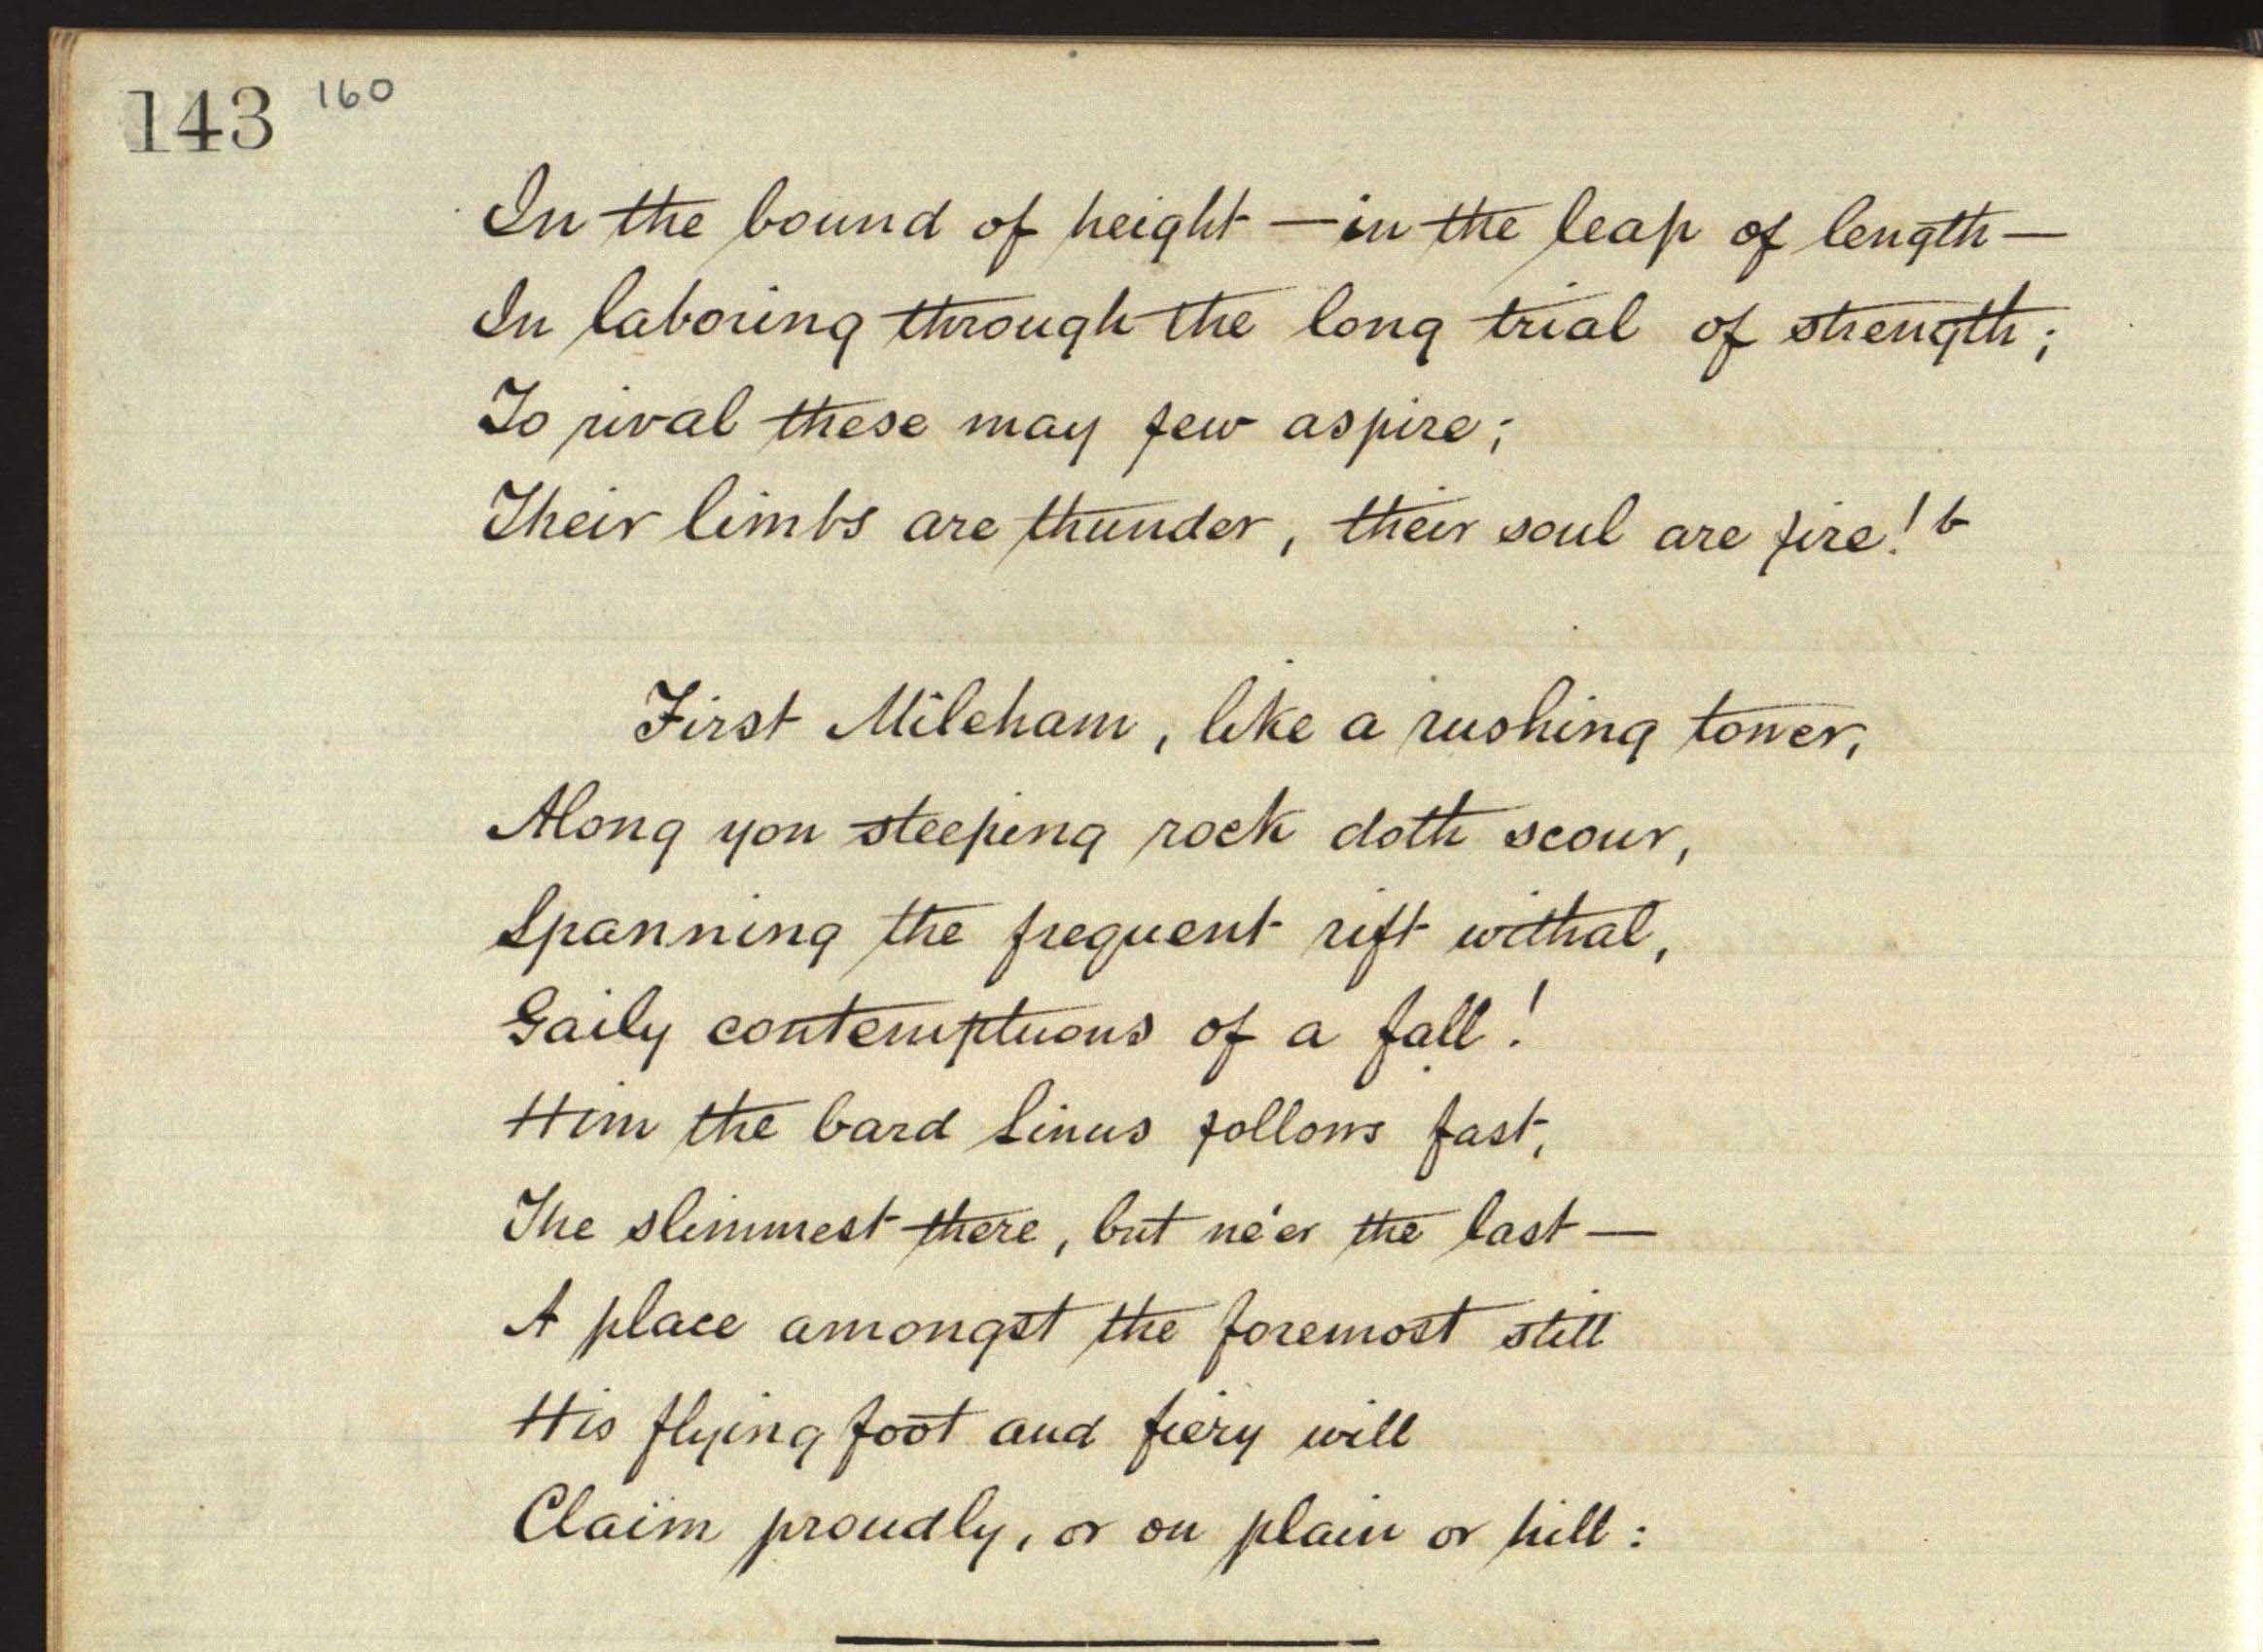 143 160
In the bound of height — in the leap of length —
In laboring through the long trial of strength;
To rival these may few aspire;
Their limbs are thunder, their soul are fire! b
First Mileham, like a rushing tower,
Along yon steeping rock doth scour,
Spanning the frequent rift withal,
Gaily contemptuous of a fall!
Him the bard Linus follows fast,
The slimmest there, but ne'er the last —
A place amongst the foremost still
His flying foot and fiery will
Claim proudly, or on plain or hill: